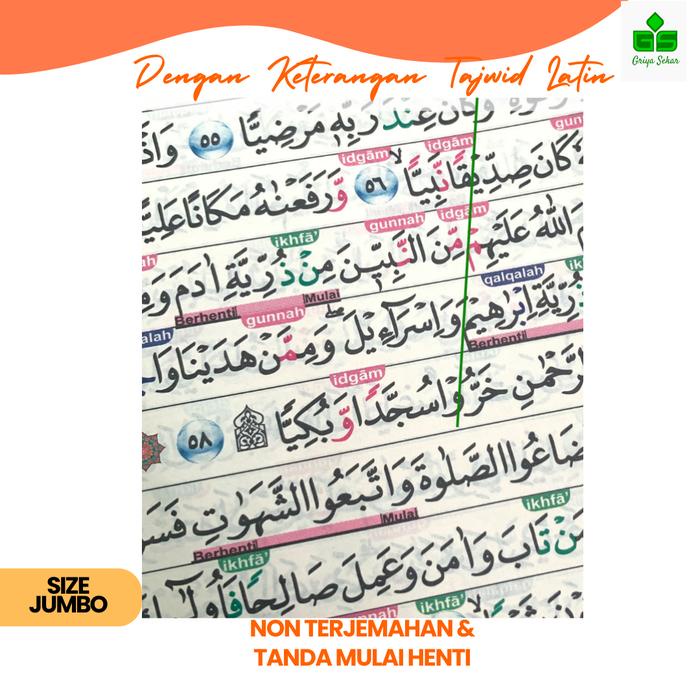 Griya Sekar
Dengan Keterangan Tajwid Latin
وَكَانَ عِنْدَ رَبِّهٖ مَرْضِيًّا ٥٥ وَاذْ
gun
idgām idgām
كَانَ صِدِّيْقًا نَّبِيًّاۙ ٥٦ وَّرَفَعْنٰهُ مَكَانًا عَلِيًّا
idgām gunnah ikhfā’ ah
اللّٰهُ عَلَيْهِمْ مِّنَ النَّبِيّٖنَ مِنْ ذُرِّيَّةِ اٰدَمَ وَمِ
ik qalqalah Mulai Berhenti
ذُرِّيَّةِ اِبْرٰهِيْمَ وَاِسْرَاۤءِيْلَۖ وَمِمَّنْ هَدَيْنَا وَا
Berhenti gunnah alah
الرَّحْمٰنِ خَرُّوْا سُجَّدًا وَّبُكِيًّا ٥٨
idgām
ضَاعُوا الصَّلٰوةَ وَاتَّبَعُوا الشَّهَوٰتِ فَسَ
ikhfā’ Mulai Berhenti
مَنْ تَابَ وَاٰمَنَ وَعَمِلَ صَالِحًا فَاُولٰۤىِٕ
ikhfā’
ikhfā’ nnah
SIZE
JUMBO
NON TERJEMAHAN &
TANDA MULAI HENTI